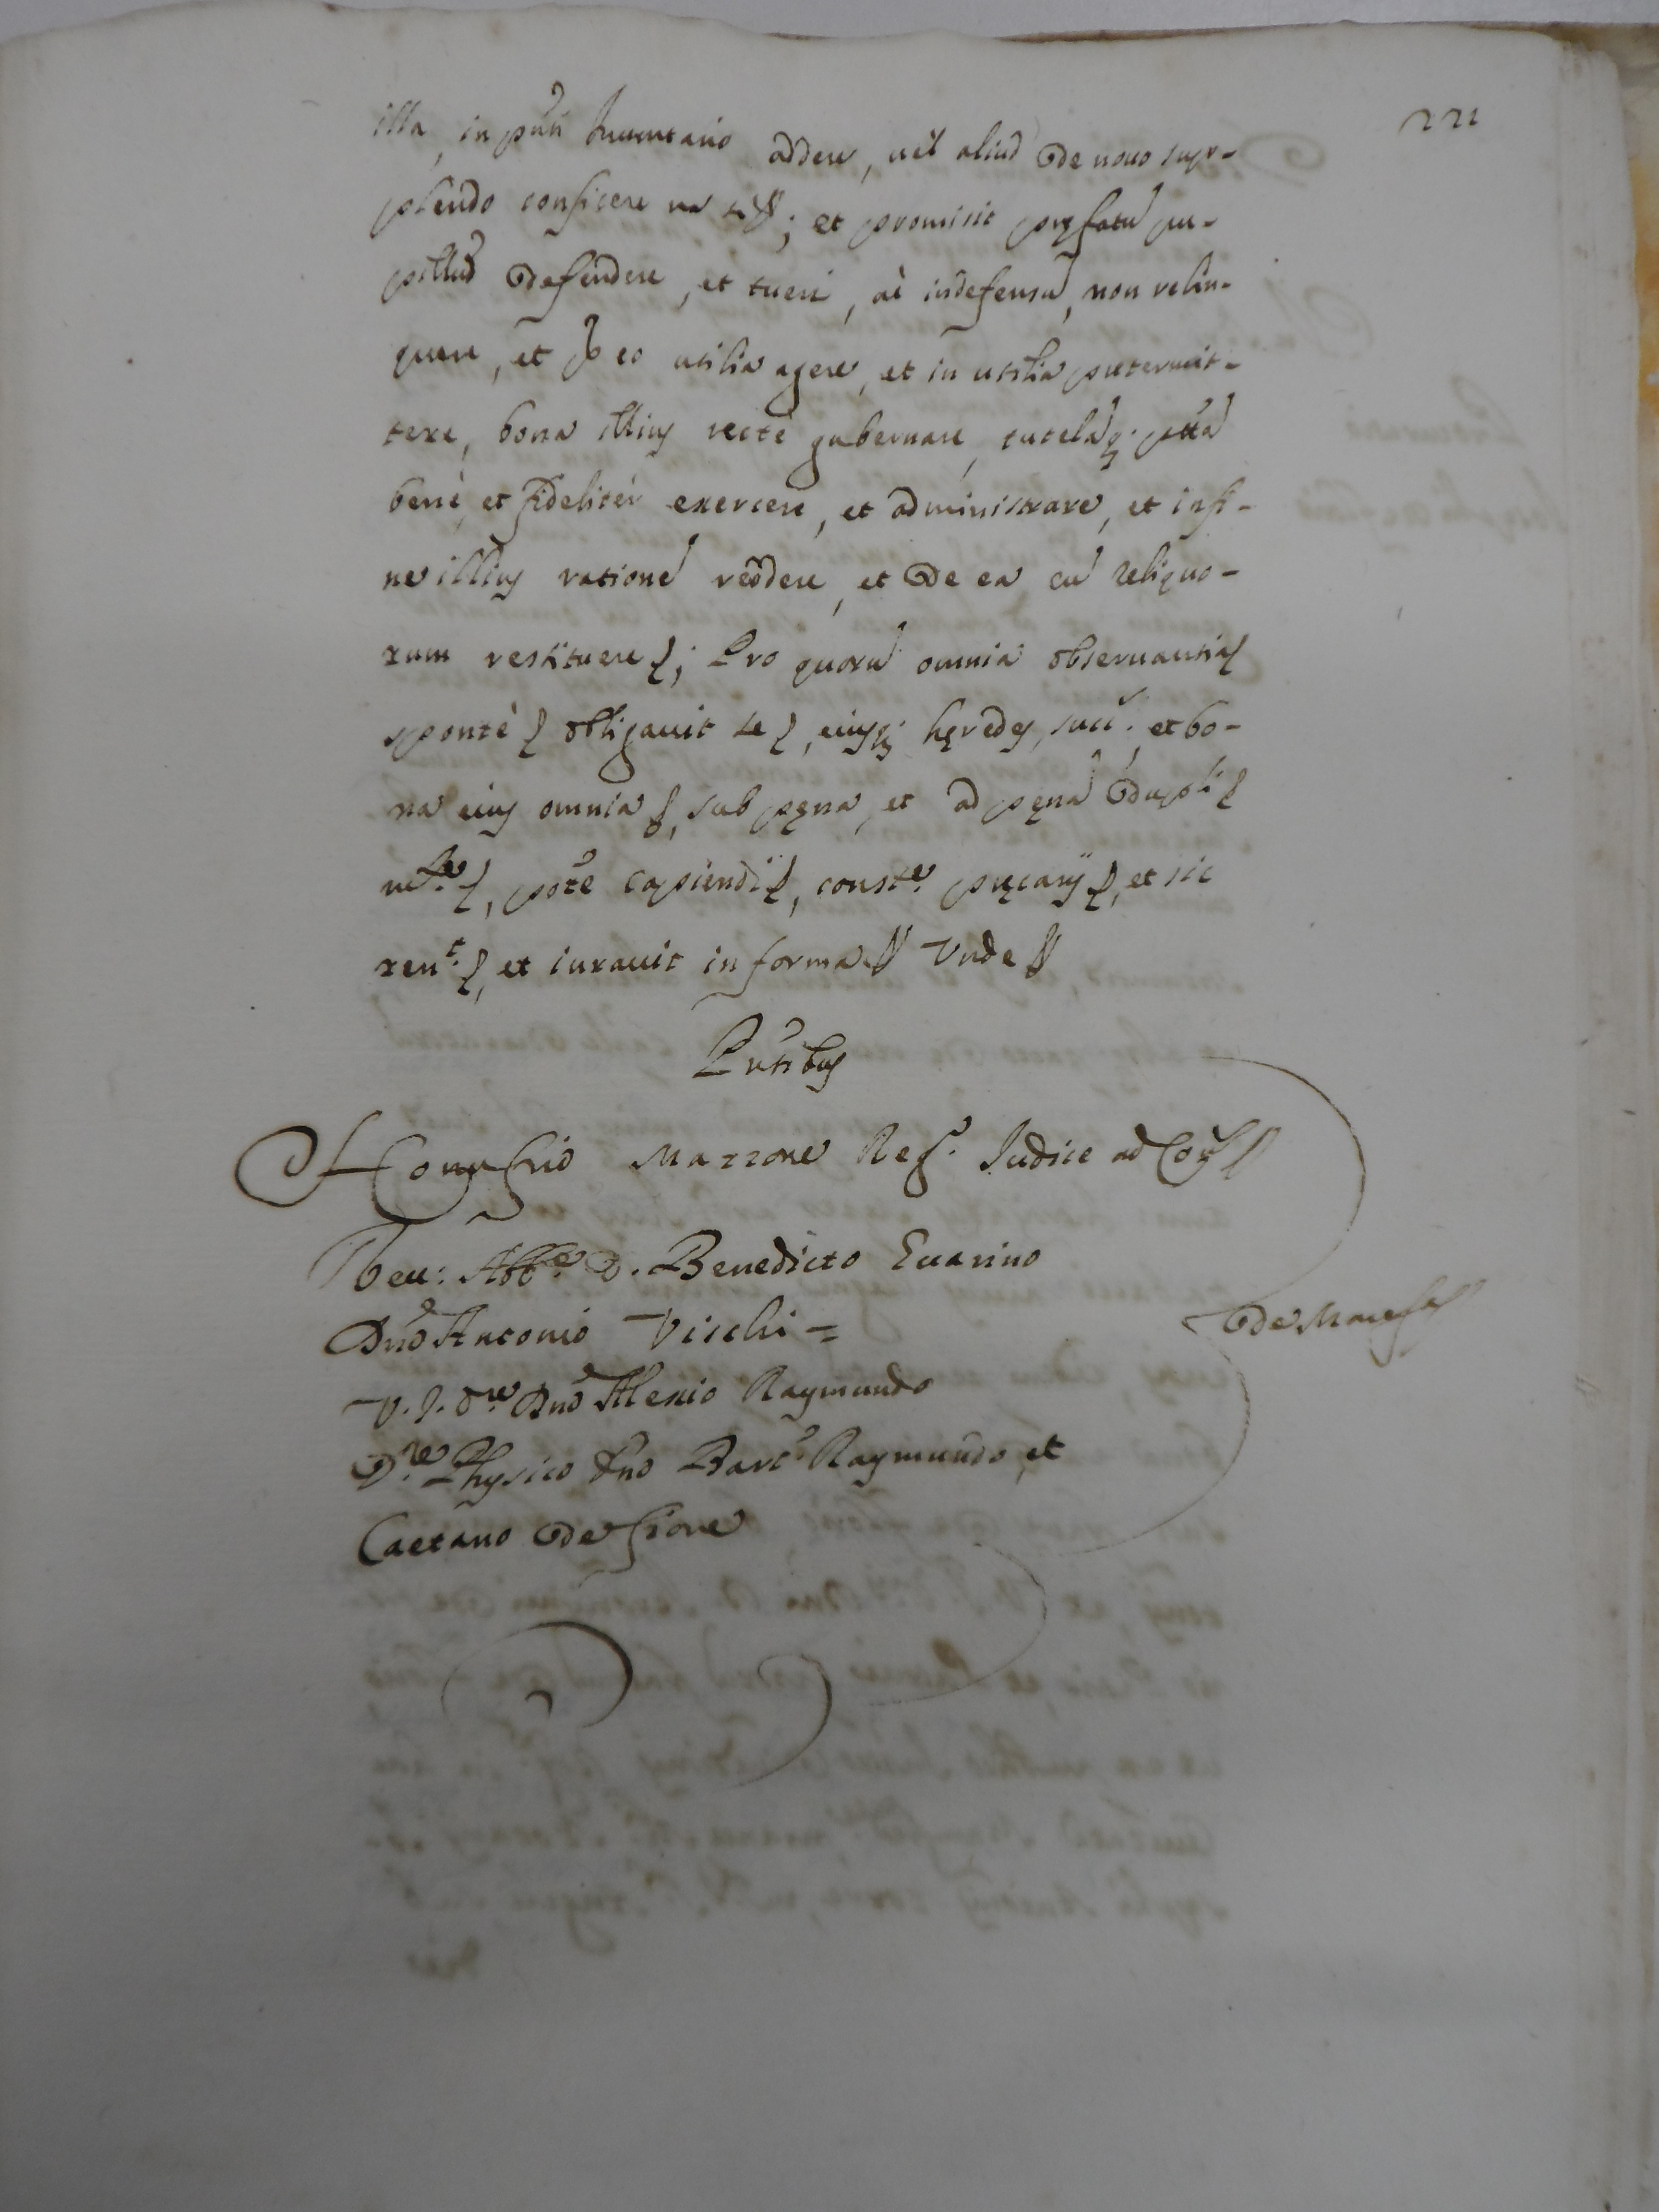 221
illa, in pn̄ti Inuentario addere, uel aliud de nouo sup-
plendo conficere; et promisit pręfatū pu-
pillū defendere, et tueri, ac indefensū, non relin-
quere, et pro eo utilia agere, et inutilia pretermit-
tere, bona illius rectè gubernare, tutelāq; p̄ttā
benè, et fidelitèr exercere, et administrare, et in fi-
ne illius rationē reddere, et de ea cū reliquo-
rum restituere; Pro quorū omnia obseruantia
spontè obligauit se, eiusq; hęredes, succ. et bo-
na eius omnia, sub pęna, et ad pęnā dupli
pot̄e capiendi, const.e pręcarij, et sic
ren.t, et iurauit in forma Unde
Pn̄tibus
Mazzone Reg.o Iudice ad Con
Reu: Abb.e D. Benedicto Guarino
Dn̄o Antonio Vischi =
de Mare
V. I. D.re Dn̄o Alexio Raymundo
D.re Physico Dn̄o Bart.o Raymundo, et
Caetano de